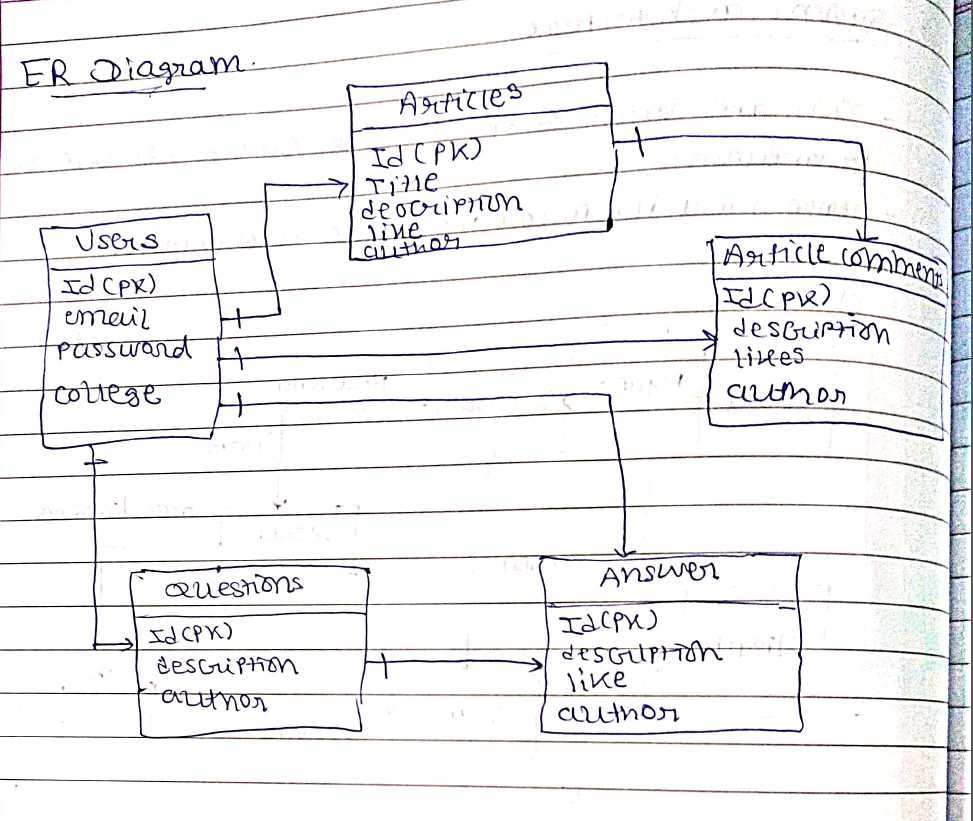 ER Diagram.
Articles
Id (PK)
Title
description
like
author
Users
Id (PK)
email
password
college
Article comments
Id (PK)
description
likes
author
Questions
Id (PK)
description
author
Answer
Id (PK)
description
like
author